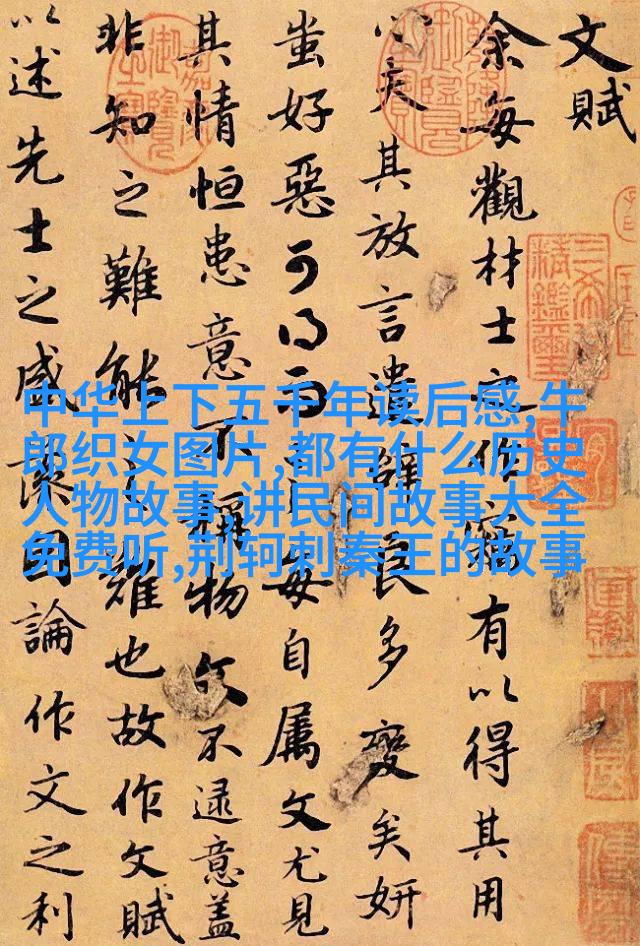 文賦
余每觀材士之作竊有以得其用
心夫其放言遣辭良多變矣妍
蚩好惡可得而言每自屬文尤見
其情恒患意不稱物文不逮意蓋
非知之難能之難也故作文賦
以述先士之盛藻因論作文之利
中华上下五千年读后感,牛
郎织女图片,都有什么历史
人物故事,讲民间故事大全
免费听,荆轲刺秦王的故事